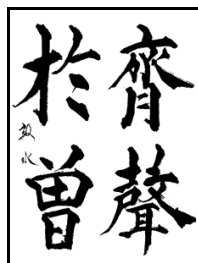 齊聲
於曽